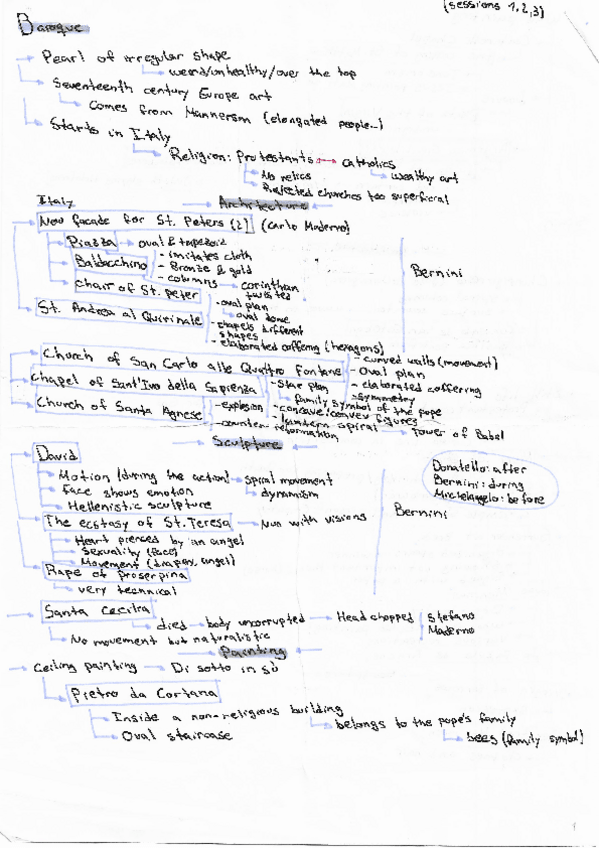 (sessions 1,2,3)
Baroque
Pearl of irregular shape
weird/unhealthy/over the top
Seventeenth century Europe art
Comes from Mannerism (elongated people...)
Starts in Italy
Religion: Protestants → catholics
No relics
wealthy art
Rejected churches too superficial
Italy
Architecture
New façade for St. Peters (2) (Carlo Maderno)
Piazza → oval & trapezoiz
Baldacchino - imitates cloth
- Bronze & gold
- columns → corinthian
twisted
chair of St. peter
Bernini
St. Andrea al Quirinale - oval plan
oval dome
- chapels different
shapes
- elaborated coffering (hexagons)
Church of San Carlo alle Quattro Fontane - curved walls (movement)
- Oval plan
- elaborated coffering
- symmetry
Chapel of Sant'Ivo della Sapienza - Star plan
family symbol of the pope
- concave/convex figures
- lantern spiral → Tower of Babel
Church of Santa Agnese - explosion
- counter-reformation
Sculpture
David
Motion (during the action) → spiral movement
dynamism
Face shows emotion
Hellenistic sculpture
Donatello: after
Bernini: during
Michelangelo: before
The ecstasy of St. Teresa → Nun with visions
Bernini
Heart pierced by an angel
Sexuality (face)
Movement (drapery, angel)
Rape of proserpina
very technical
Santa Cecilia
died → body uncorrupted → Head chopped
Stefano
Maderno
No movement but naturalistic
Painting
Ceiling painting → Di sotto in sù
Pietro da Cortana
Inside a non-religious building
belongs to the pope's family
bees (family symbol)
Oval staircase